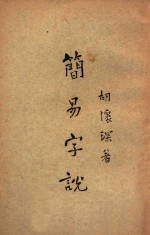 簡易字說
胡懷琛著